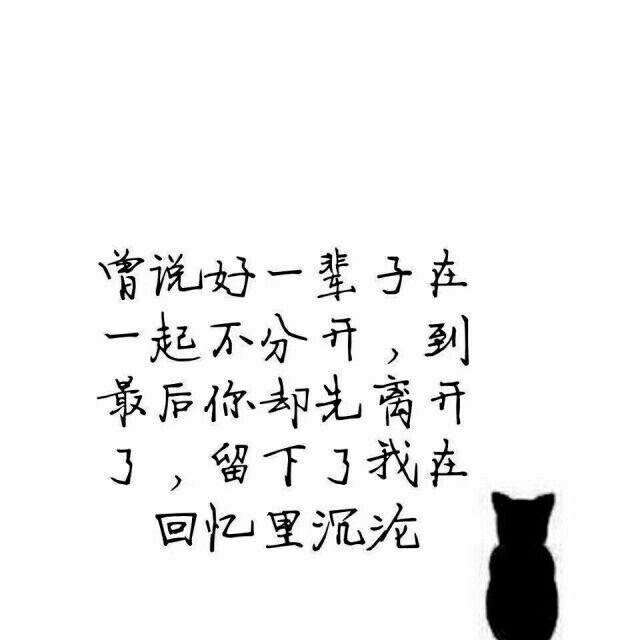 曾说好一辈子在
一起不分开，到
最后你却先离开
了，留下了我在
回忆里沉沦